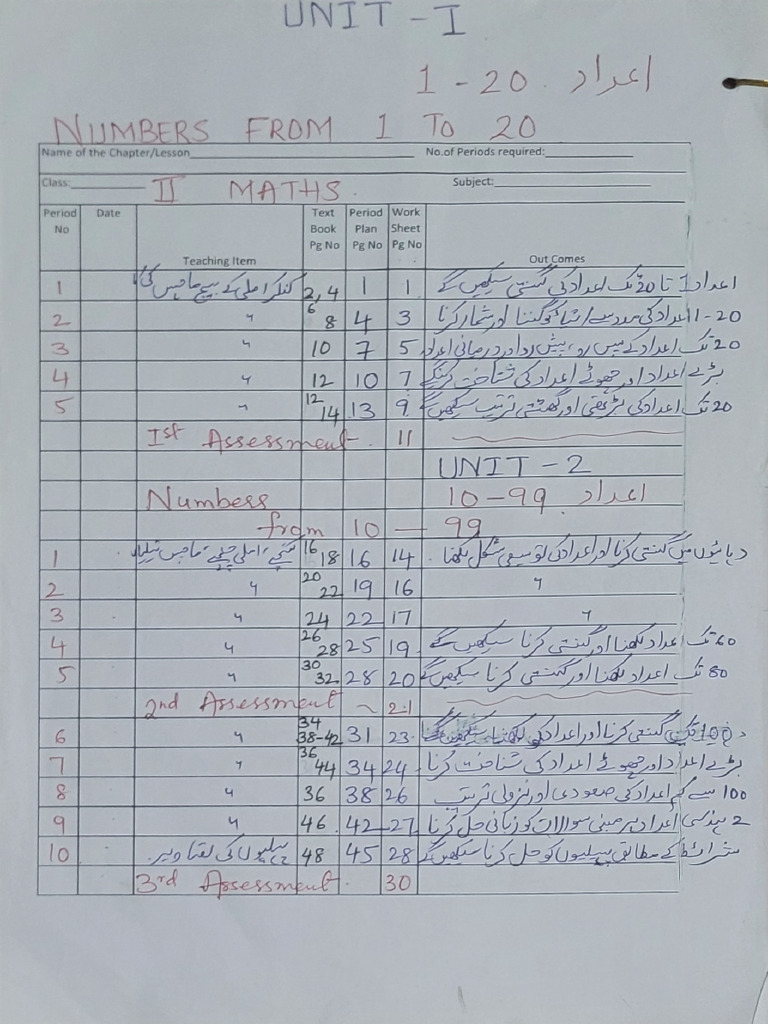 UNIT - I
1 - 20 اعداد
NUMBERS FROM 1 TO 20
Name of the Chapter/Lesson No.of Periods required:
Class: II MATHS Subject:
Period No Date Teaching Item Text Book Pg No Period Plan Pg No Work Sheet Pg No Out Comes
1 کنکر املی کے بیج ماچس کی 2,4 1 1 اعداد 1 تا 20 تک اعداد کی گنتی سیکھیں گے
2 〃 6 8 4 3 1-20 اعداد کی مدد سے اشیاء کو گننا اور شمار کرنا
3 〃 10 7 5 20 تک اعداد کے پس رو، پیش رو اور درمیانی اعداد
4 〃 12 10 7 بڑے اعداد اور چھوٹے اعداد کی شناخت کرینگے
5 〃 12 14 13 9 20 تک اعداد کی بڑھتی اور گھٹتی ترتیب سیکھیں گے
Ist Assessment 11
UNIT - 2
Numbers 10-99 اعداد
from 10 — 99
1 املی ماچس 16 18 16 14 دہائیوں میں گنتی کرنا اور اعداد کی توسیعی شکل لکھنا
2 〃 20 22 19 16 〃
3 〃 24 22 17 〃
4 〃 26 28 25 19 60 تک اعداد لکھنا اور گنتی کرنا سیکھیں گے
5 〃 30 32 28 20 80 تک اعداد لکھنا اور گنتی کرنا سیکھیں گے
2nd Assessment ~ 21
6 〃 34 38-42 31 23 100 تک گنتی کرنا اور اعداد کو لکھنا
7 〃 36 44 34 24 بڑے اعداد اور چھوٹے اعداد کی شناخت کرنا
8 〃 36 38 26 100 سے کم اعداد کی صعودی اور نزولی ترتیب
9 〃 46 42 27 2 ہندسی اعداد پر مبنی سوالات کو زبانی حل کرنا
10 پہلیوں کی تصاویر 48 45 28 شرائط کے مطابق پہیلیوں کو حل کرنا سیکھیں گے
3rd Assessment 30